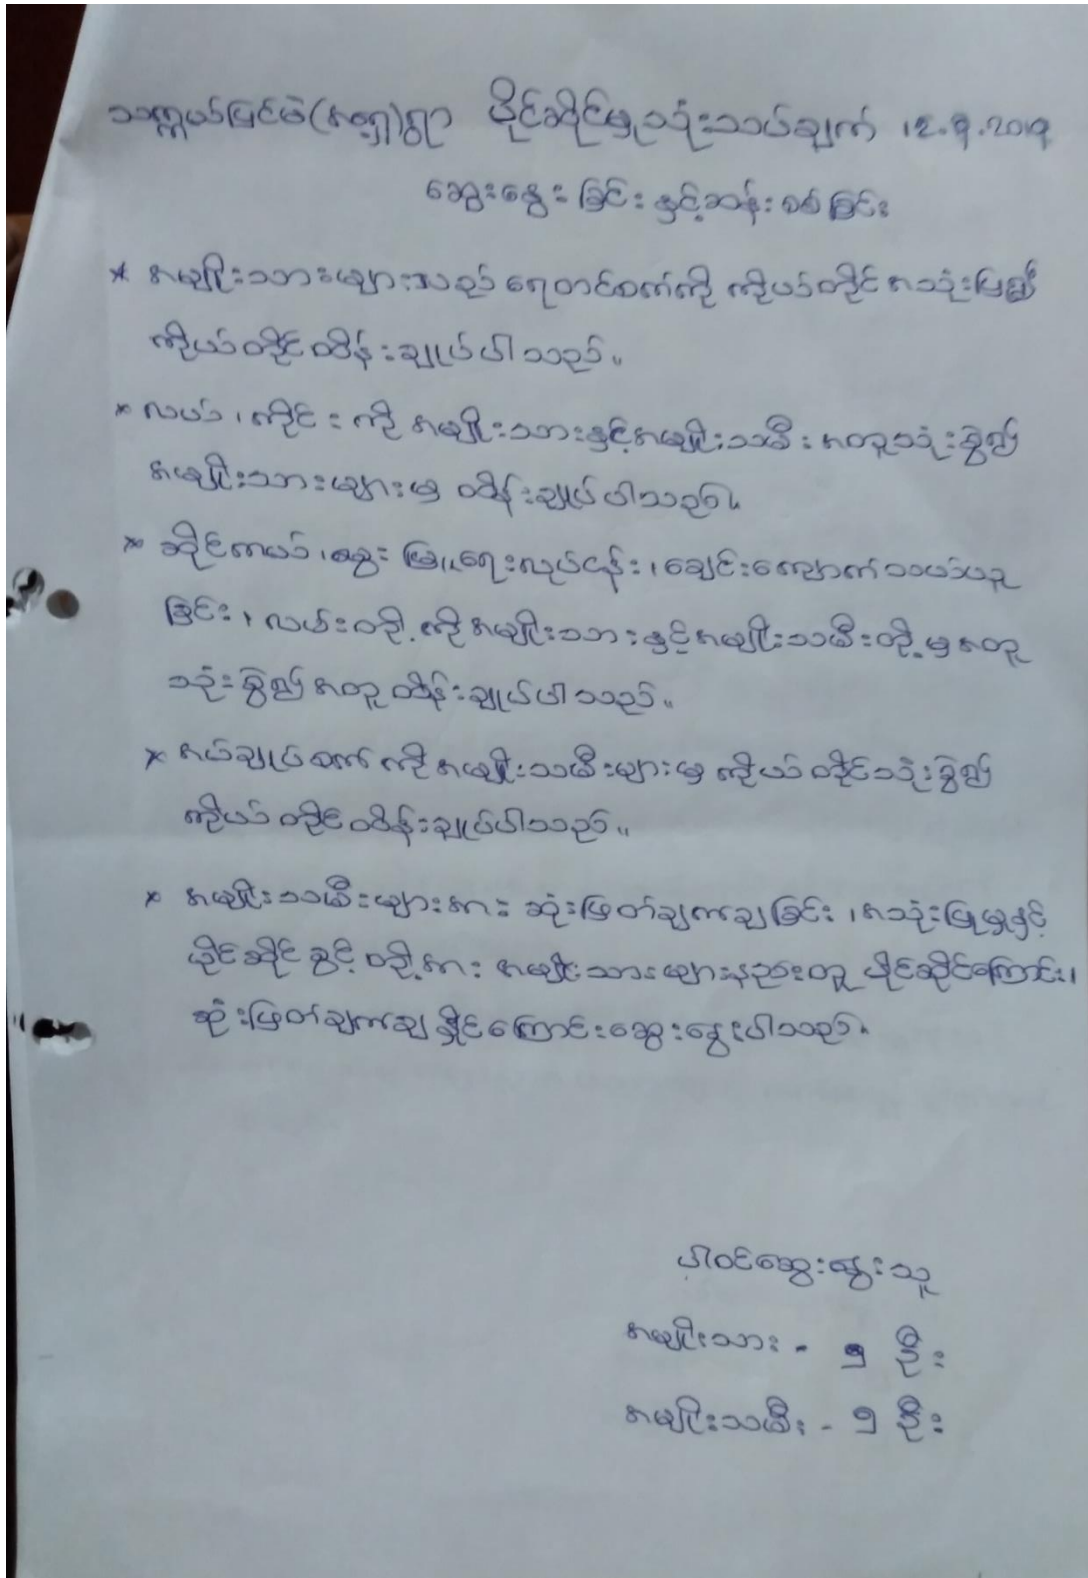 သက္ကယ်ပြင်မဲ(အရှေ့)ရွာ ပိုင်ဆိုင်မှုသုံးသပ်ချက် ၊၉.၅.၂၀၁၅
ဆွေးနွေးခြင်းနှင့်ဆန်းစစ်ခြင်း
* အမျိုးသားများသည် ရေတင်စက်ကို ကိုယ်တိုင် အသုံးပြု၍
ကိုယ်တိုင်ထိန်းချုပ်ပါသည်။
* လယ်၊ကိုင်းကို အမျိုးသားနှင့်အမျိုးသမီးအတူသုံးစွဲ၍
အမျိုးသားများမှ ထိန်းချုပ်ပါသည်။
* ဆိုင်ကယ်၊မွေးမြူရေးလုပ်ငန်း၊ချေင်းကျောက်သယ်ယူ
ခြင်း၊လယ်းတို့ကိုအမျိုးသားနှင့်အမျိုးသမီးတို့မှအတူ
သုံးစွဲ၍အတူထိန်းချုပ်ပါသည်။
* အပ်ချုပ်စက်ကိုအမျိုးသမီးများမှ ကိုယ်တိုင်သုံးစွဲ၍
ကိုယ်တိုင်ထိန်းချုပ်ပါသည်။
* အမျိုးသမီးများအား ဆုံးဖြတ်ချက်ချခြင်း၊အသုံးပြုမှုနှင့်
ပိုင်ဆိုင်ခွင့်တို့အား အမျိုးသားများနည်းတူ ပိုင်ဆိုင်ကြောင်း၊
ဆုံးဖြတ်ချက်ချနိုင်ကြောင်းဆွေးနွေးပါသည်။
ပါဝင်ဆွေးနွေးသူ
အမျိုးသား - ၅ ဦး
အမျိုးသမီး - ၅ ဦး